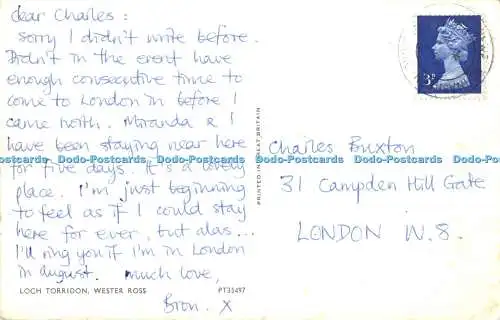 dear Charles:
sorry I didn't write before.
Didn't in the event have
enough consecutive time to
come to London in before I
came north. Miranda & I
have been staying near here
for five days. It's a lovely
place. I'm just beginning
to feel as if I could stay
here for ever, but alas...
I'll ring you if I'm in London
in august. Much love,
Bron. X
LOCH TORRIDON, WESTER ROSS PT35497
PRINTED IN GREAT BRITAIN
3D
Charles Buxton
31 Campden Hill Gate
LONDON W.8.
Dodo-Postcards Dodo-Postcards Dodo-Postcards Dodo-Postcards Dodo-Postcards Dodo-Postcards